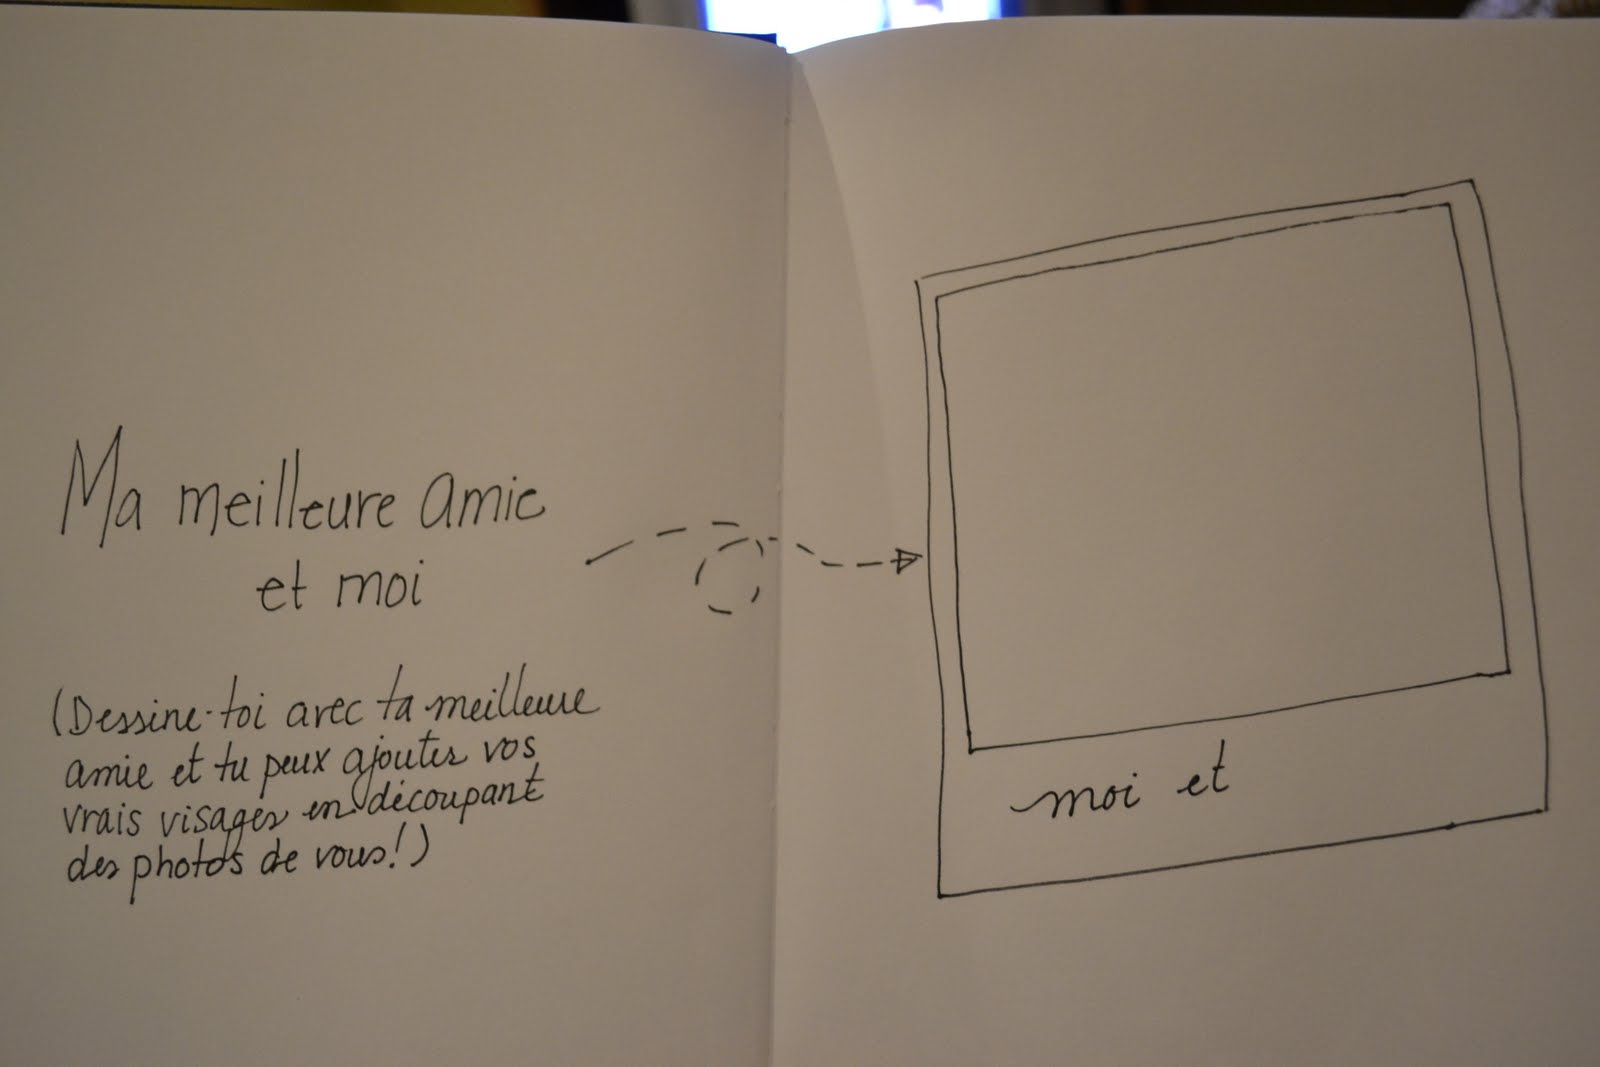 Ma meilleure amie
et moi
(Dessine-toi avec ta meilleure
amie et tu peux ajouter vos
vrais visages en découpant
des photos de vous!)
moi et